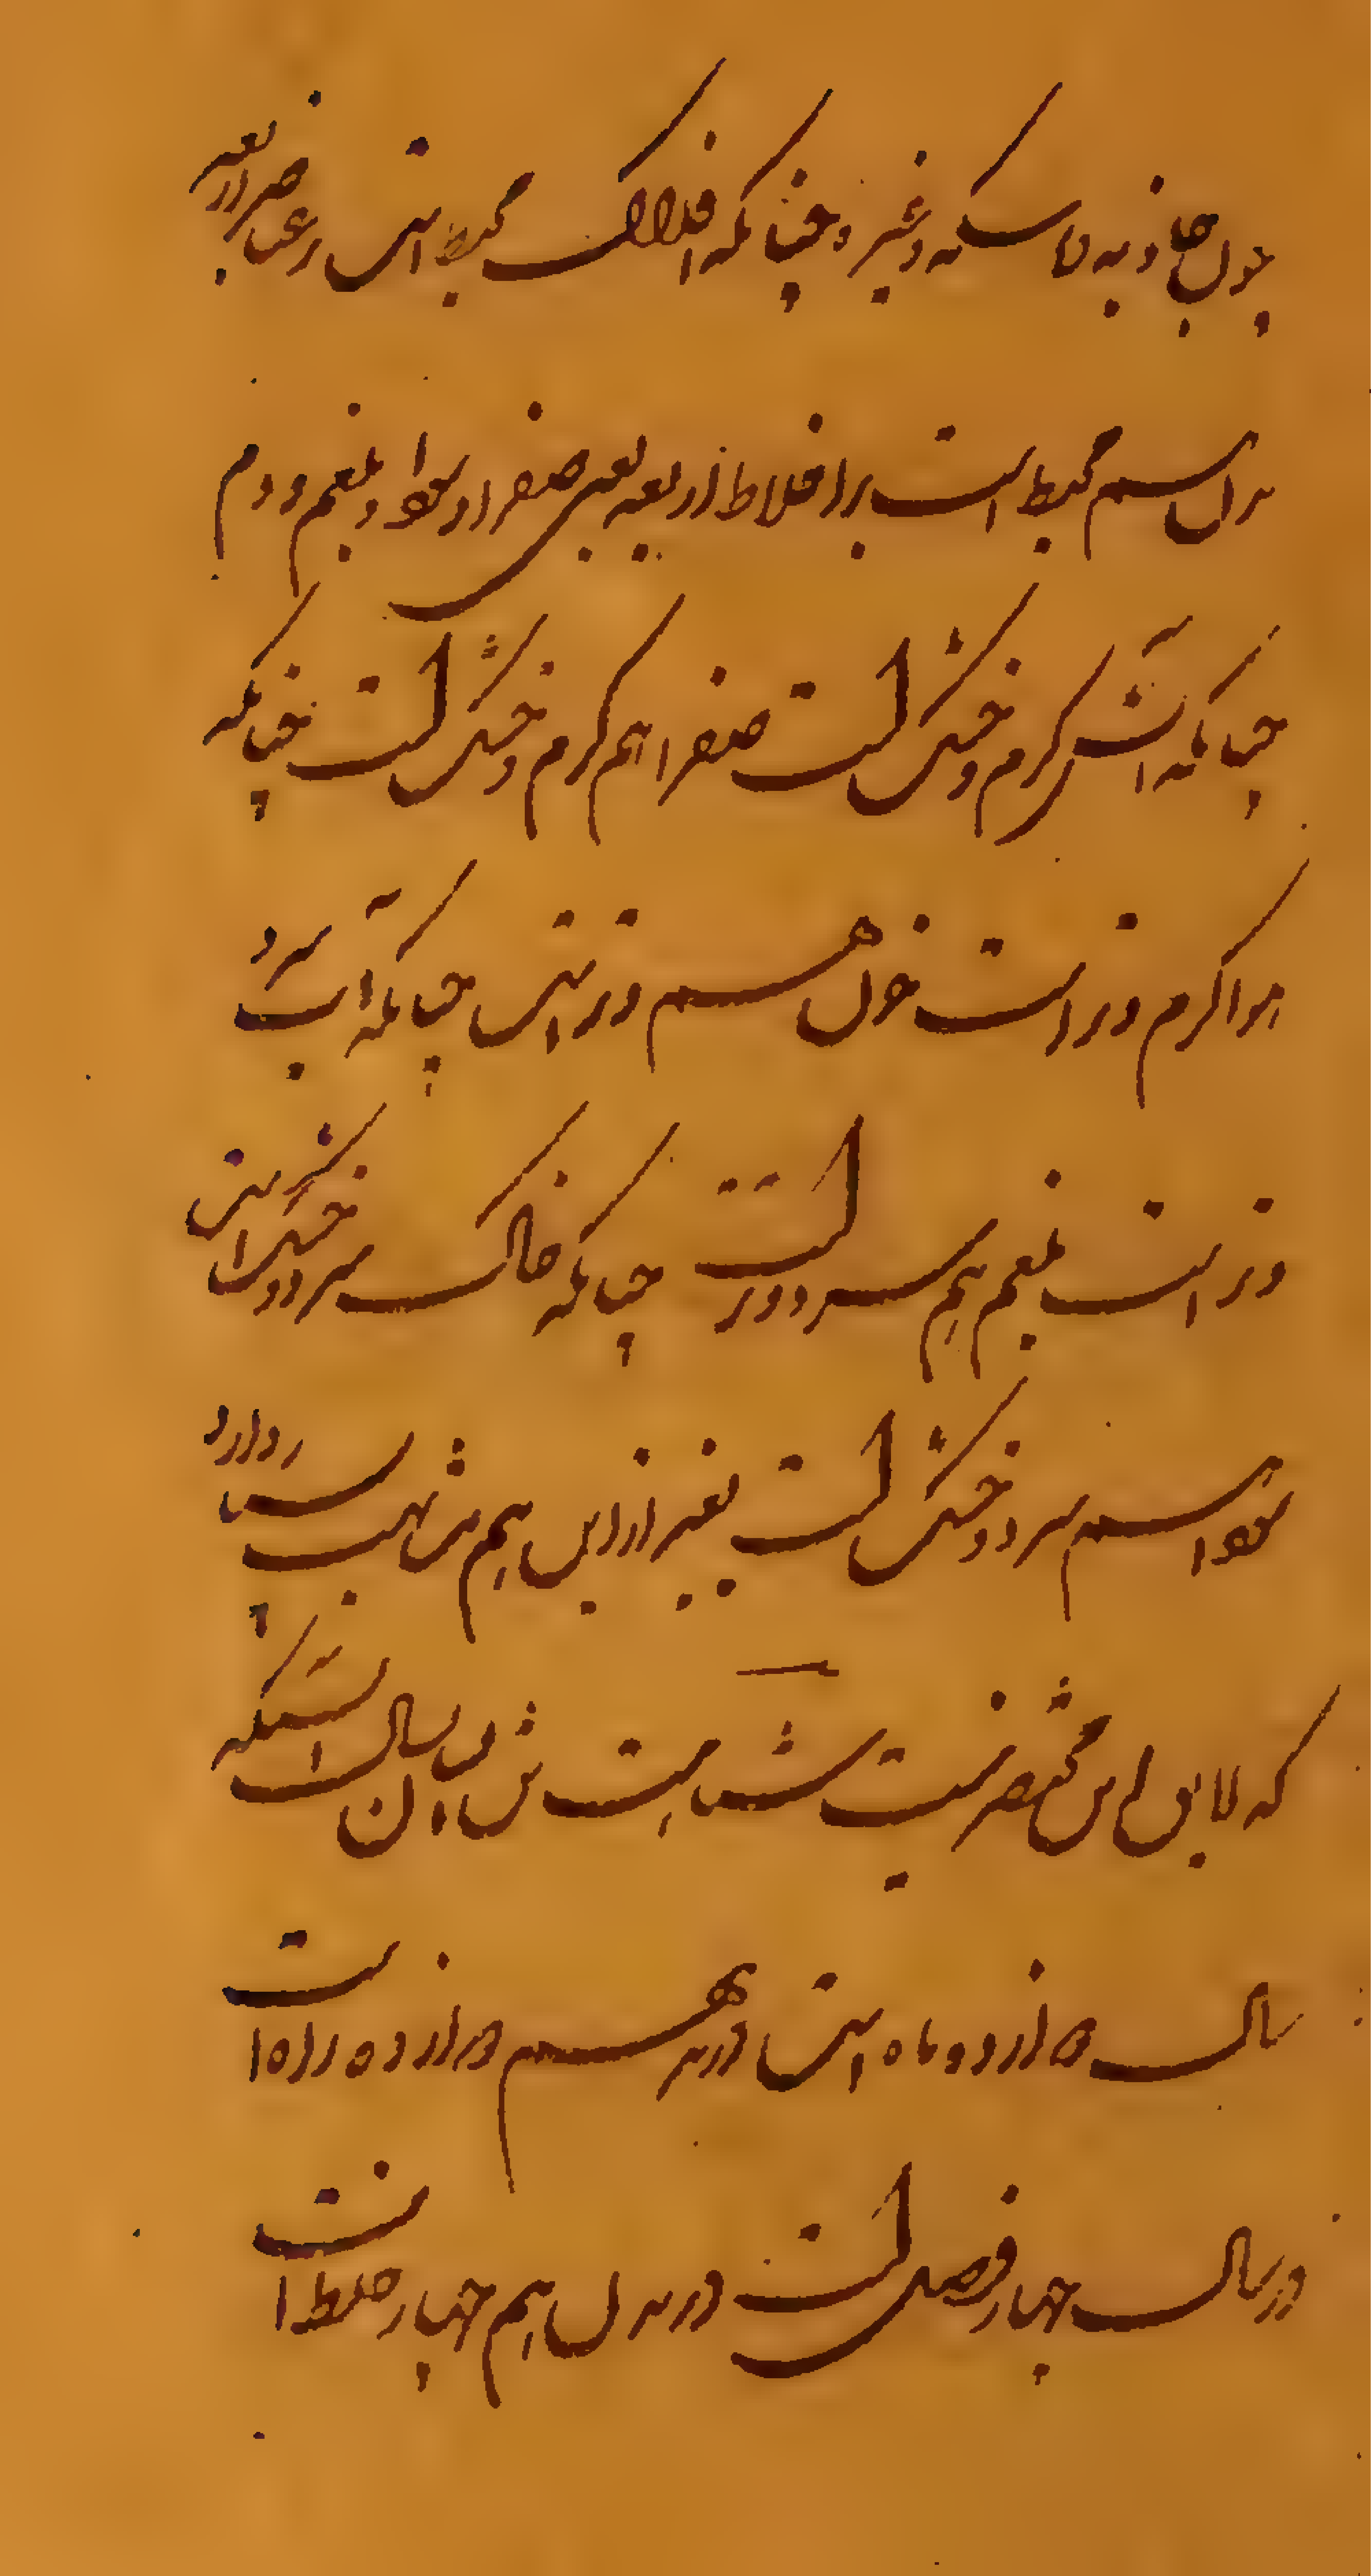 چون جاذبه و ماسکه و غیر و چنانکه افلاک محیط است بر عناصر اربعه
بدن هم محیط است بر اخلاط اربعه یعنی صفرا و سودا و بلغم و دم
چنانکه آتش گرم و خشک است صفرا هم گرم و خشک است چنانکه
هوا گرم و تر است خون هم و تر است چنانکه آب سرد
و تر است بلغم هم سرد و تر است چنانکه خاک سرد و خشک است
سودا هم سرد و خشک است بغیر از این هم مشابهت بسیار دارد
که لایق این مختصر نیست مشابهت شان بسال آنستکه
سال دوازده ماه است در بدن هم دوازده راه است
در سال چهار فصل است در بدن هم چهار خلط است